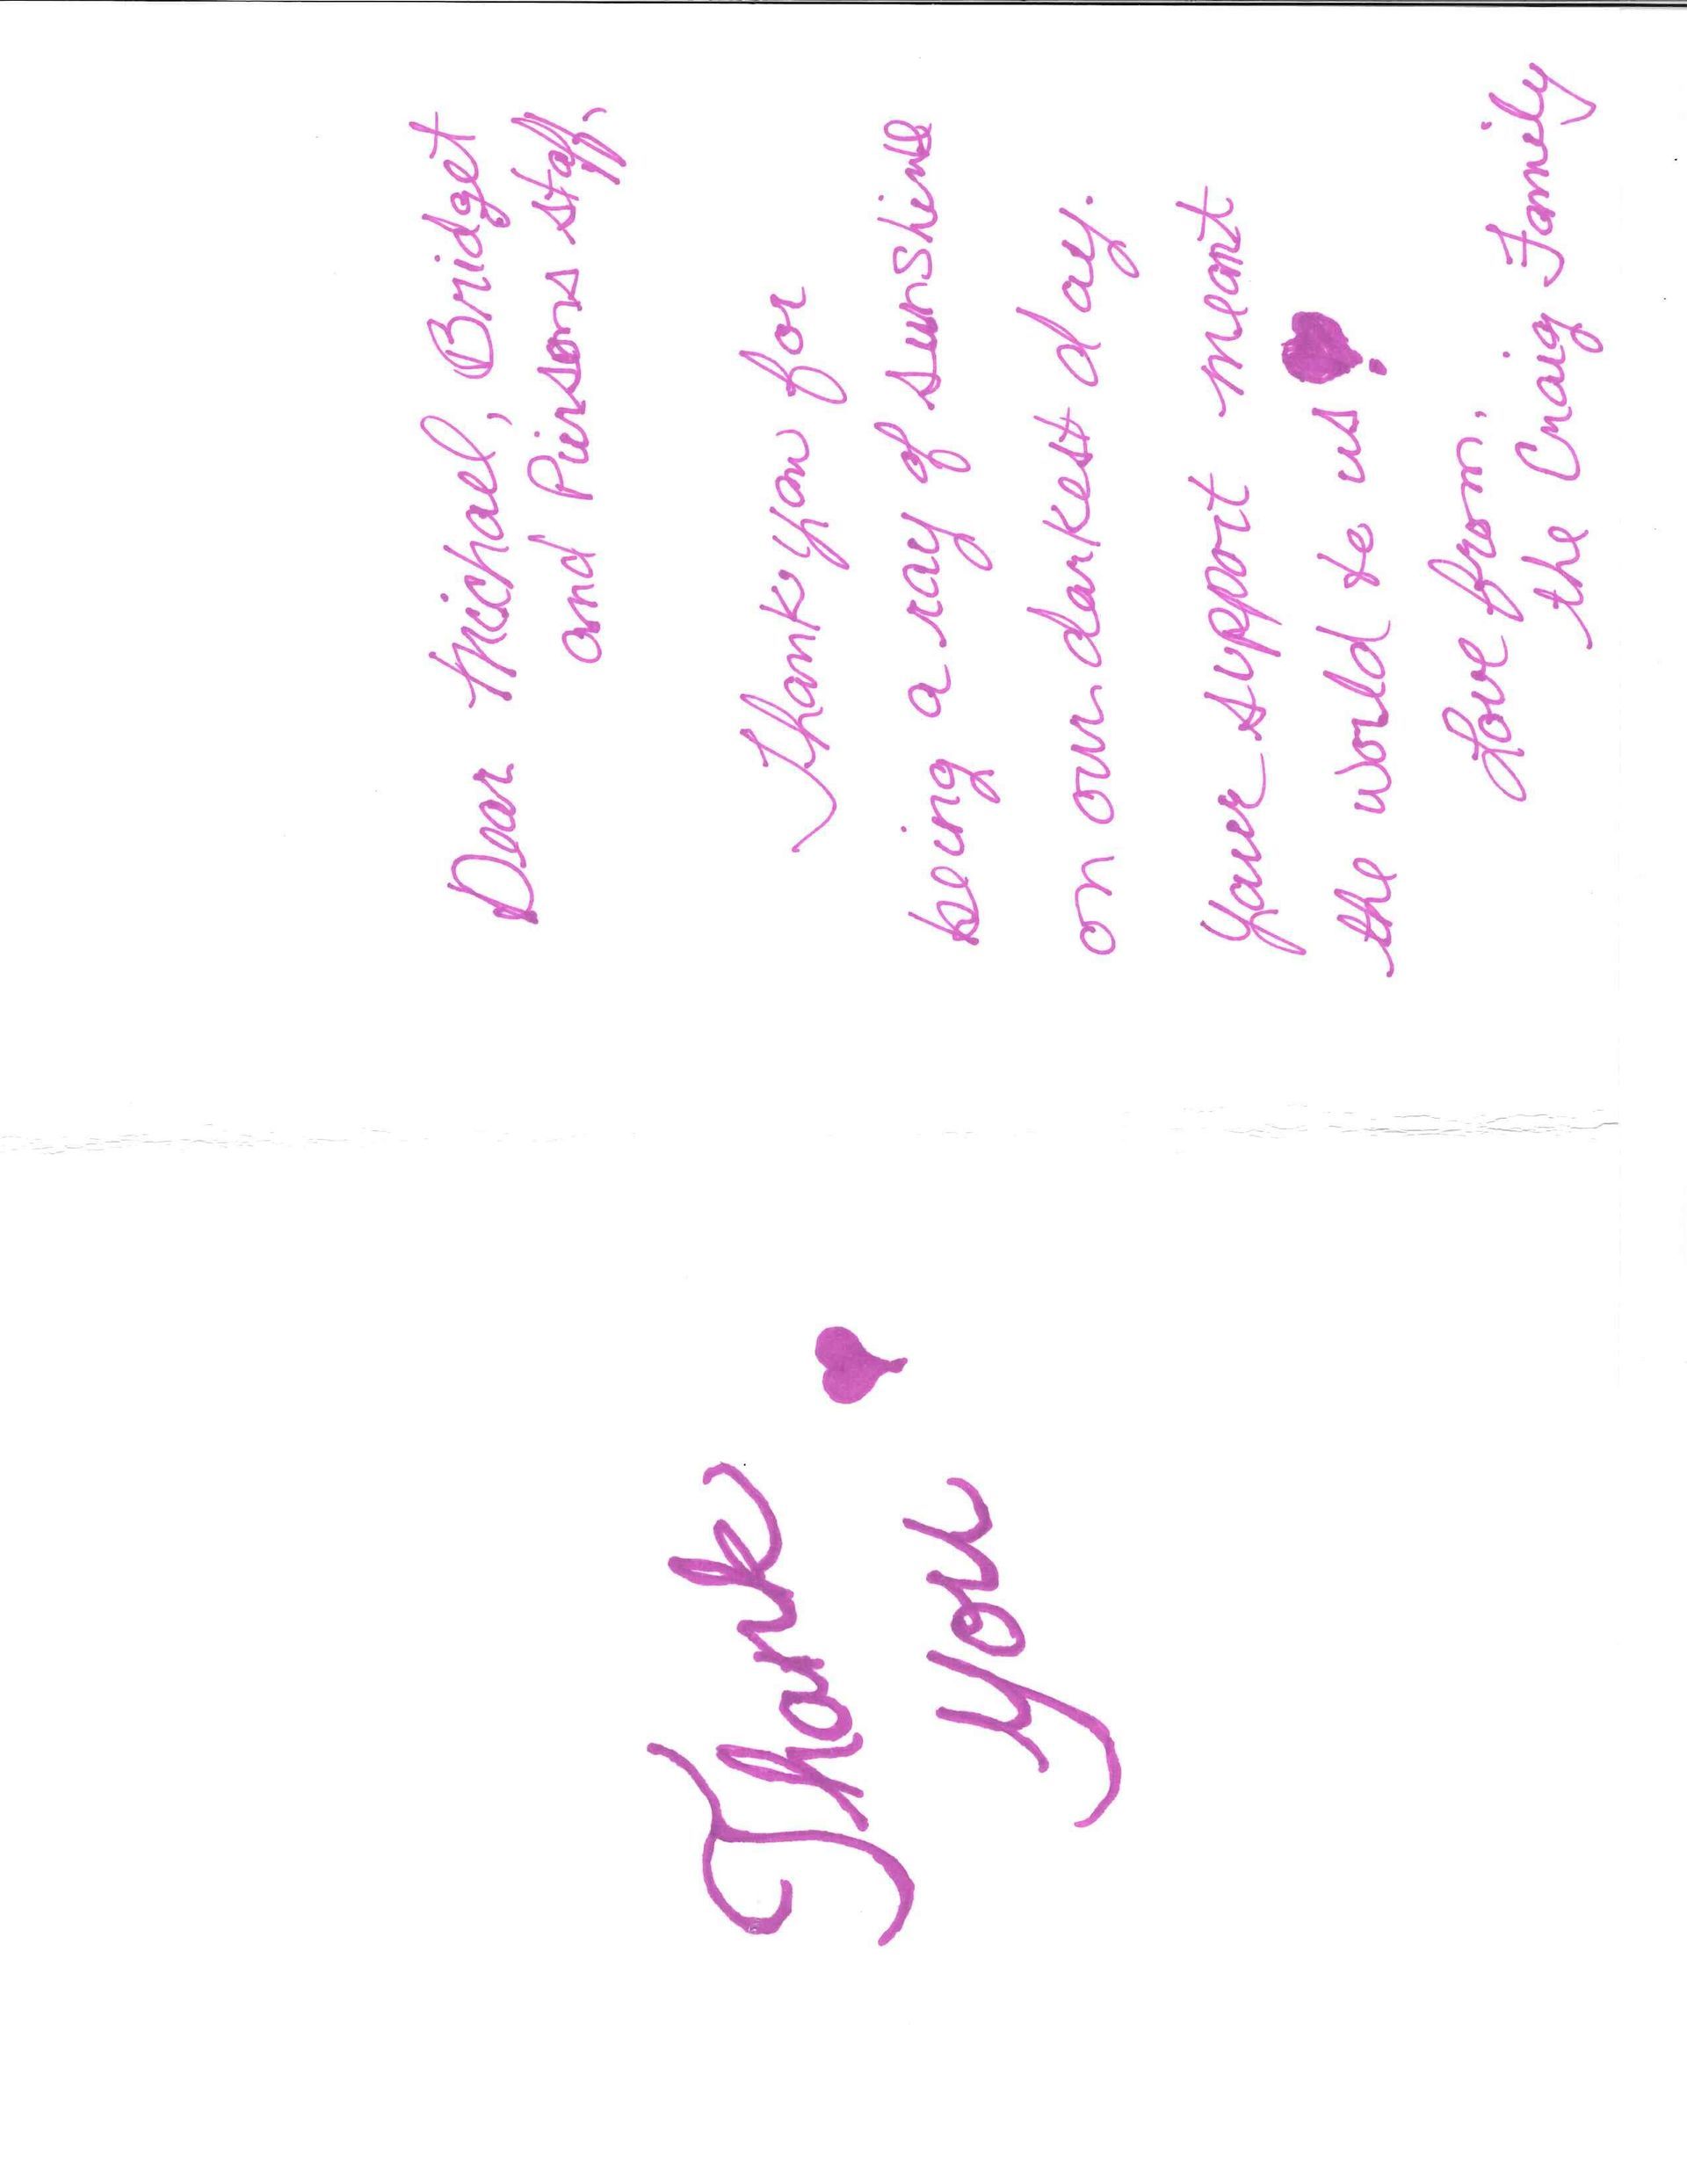 Thank
you
Dear Michael, Bridget
and Pinsons staff,
Thank you for
being a ray of sunshine
on our darkest day.
Your support meant
the world to us!
Love from:
the Craig Family